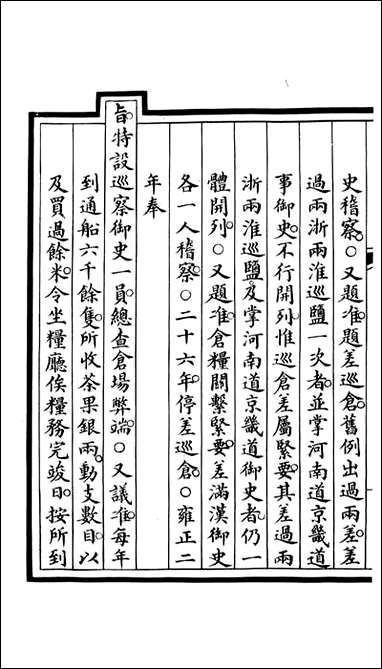 史稽察○又題准題差巡倉舊例出過兩差差
過兩浙兩淮巡鹽一次者並掌河南道京畿道
事御史不行開列惟巡倉差屬緊要其差過兩
浙兩淮巡鹽及掌河南道京畿道御史者仍一
體開列○又題准倉糧關繫緊要差滿漢御史
各一人稽察○二十六年停差巡倉○雍正二
年奉
旨特設巡察御史一員總查倉場弊端○又議准每年
到通船六千餘隻所收茶果銀兩動支數目以
及買過餘米令坐糧廳俟糧務完竣日按所到